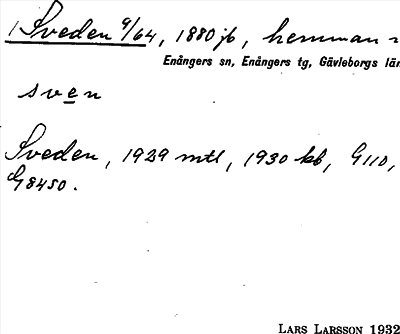 1 Sveden 9/64, 1880 jb, hemman
Enångers sn, Enångers tg, Gävleborgs län
sven
Sveden, 1929 mtl, 1930 kb, G110,
G8450.
LARS LARSSON 1932